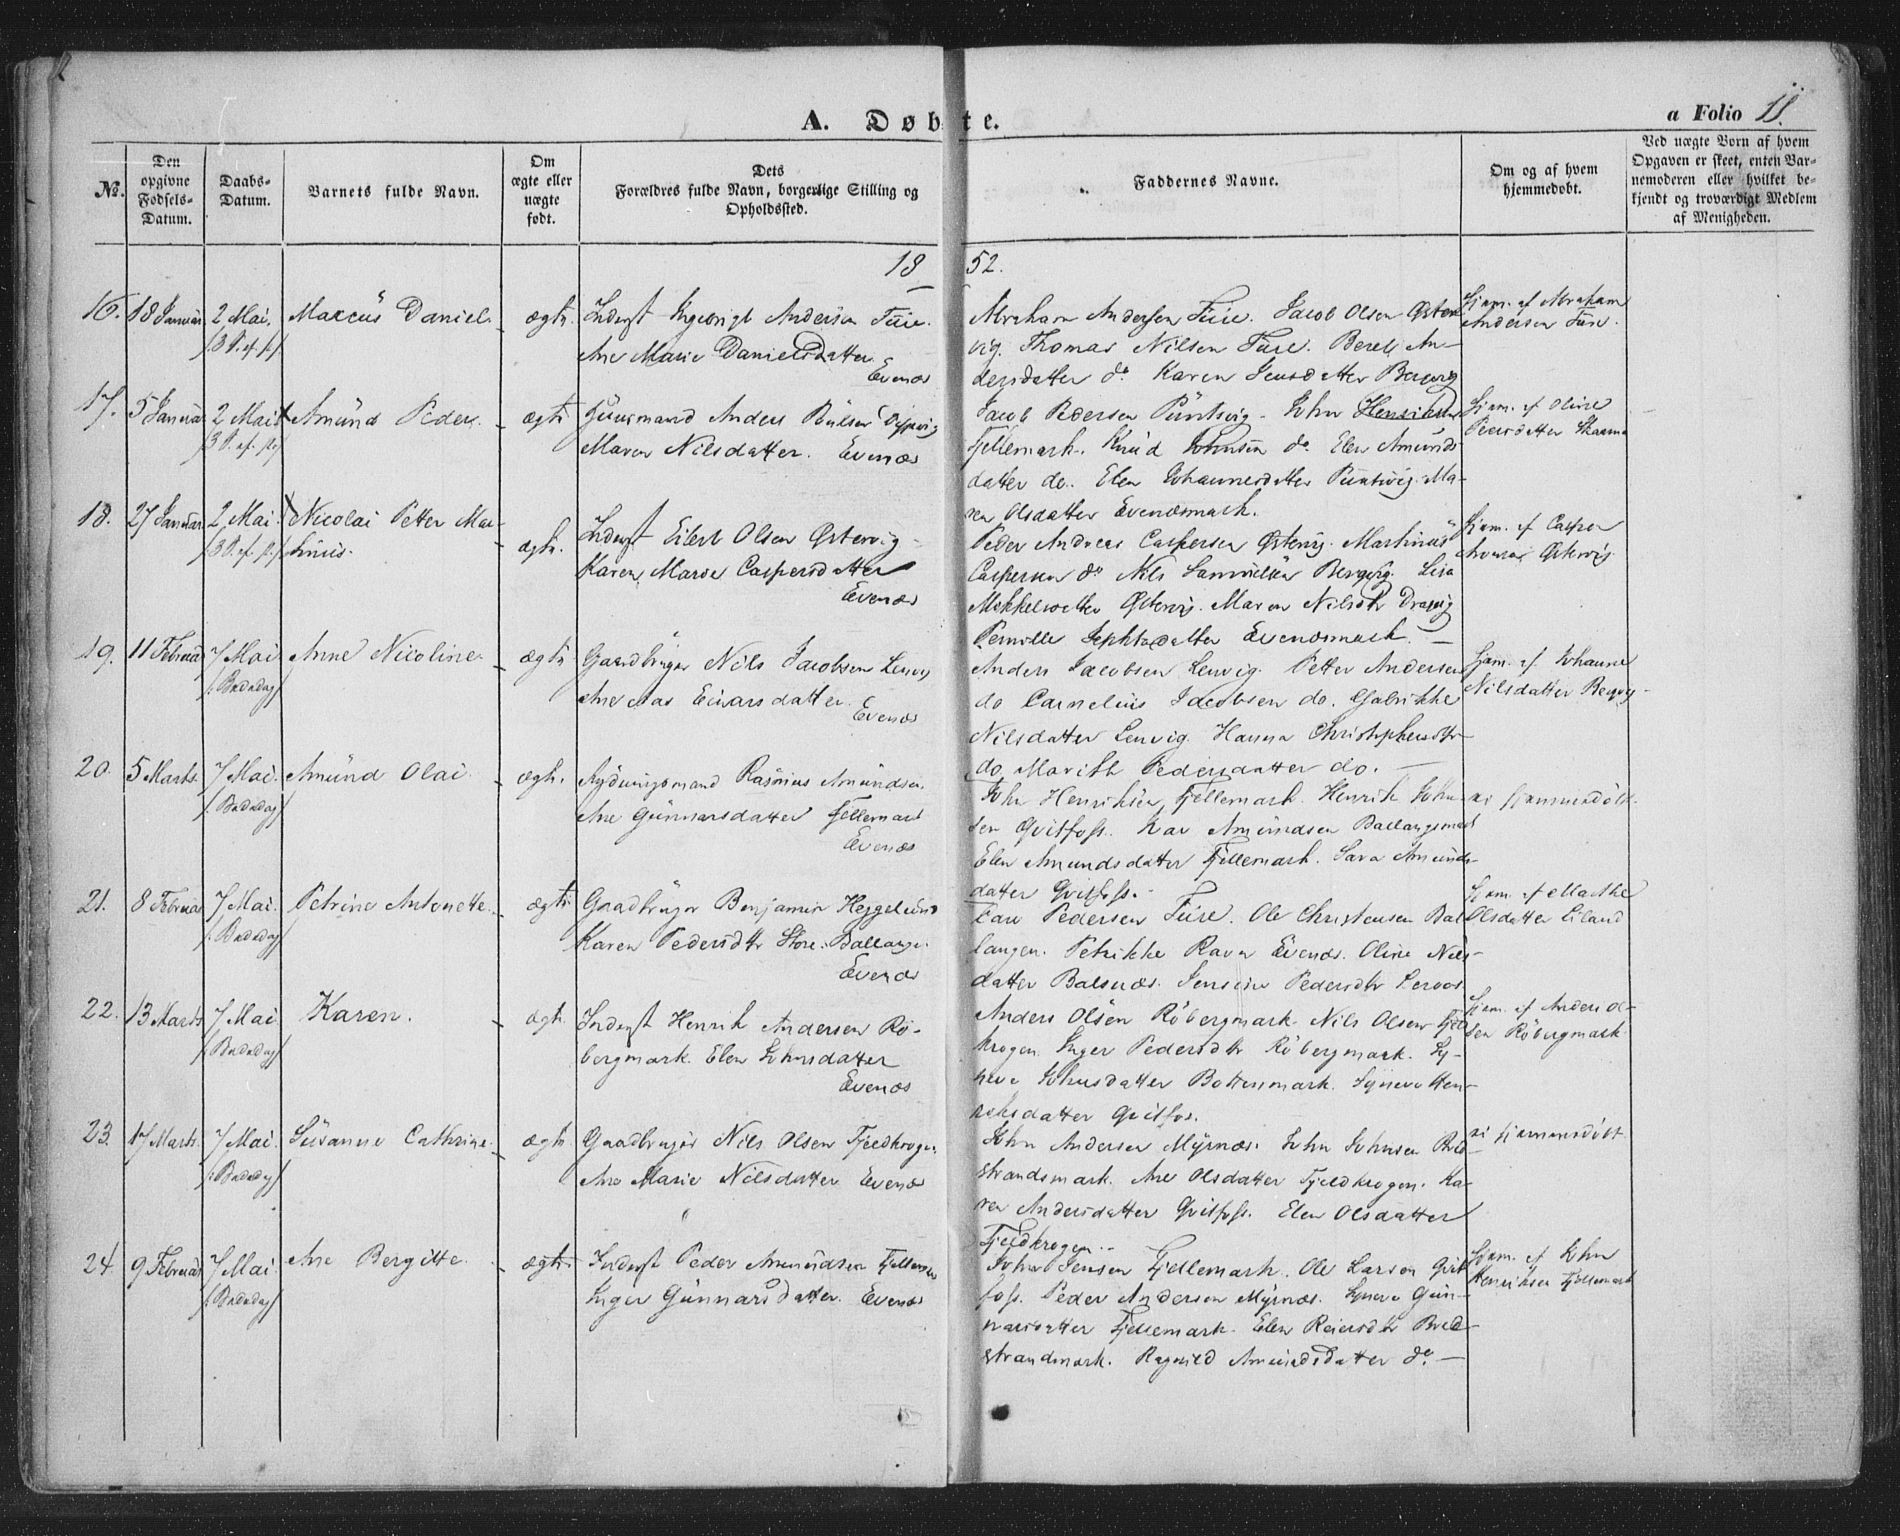 A. Døbte.
a Folio 11.
No.
Den opgivne Fødsels-Datum.
Daabs-Datum.
Barnets fulde Navn.
Om ægte eller uægte født.
Dets Forældres fulde Navn, borgerlige Stilling og Opholdssted.
Faddernes Navne.
Om og af hvem hjemmedøbt.
Ved uægte Born af hvem Opgaven er skeet, enten Barnemoderen eller hvilket bekjendt og troværdigt Medlem af Menigheden.
1852.
16. 18 Januar 2 Mai. Marcus Daniel. ægte. Inderst Ingebrigt Andersen Fure.
Ane Marie Danielsdatter
Evenæs
Abraham Andersen Fure. Jacob Olsen Øster
vig. Thomas Nilsen Fure. Bereth An-
dersdatter do. Karen Jensdatter Bergvig
Hjem. af Abraham
Andersen Fure.
17. 5 Januar 2 Mai Amund Peder. ægte Huusmand Anders
Maren Nilsdatter. Evenæs
Jacob Pedersen Puntsvig. John Henriksen
Fjellemark. Knud Johnsen do. Elen Amunds
datter do. Elen Johannesdatter Puntsvig. Ma-
ren Olsdatter Evenæsmark.
Hjem. af Oline
Pedersdatter
18. 27 Januar 2 Mai Nicolai Petter Mar-
tinus. ægte. Inderst Eilert Olsen Østervig
Karen Marie Caspersdatter
Evenæs
Peder Andreas Caspersen Østervig. Martinus
Caspersen do Nils Samuelsen Bergvig. Lisa
Mikkelsdatter Østervig. Maren Nilsdtr Dragvig
Pernille Jephtadatter Evenæsmark.
Hjem. af Casper
Østervig
19. 11 Februar 7 Mai Anne Nicoline ægte Gaardbruger Nils Jacobsen Lenvig
/: Bededag
Ane Einarsdatter.
Evenæs
Anders Jacobsen Lenvig. Petter Andersen
do Cornelius Jacobsen do. Gabrikke
Nilsdatter Lenvig. Hanna Christophersdtr
do Marith Pedersdatter do.
Hjem. af Johanne
Nilsdatter Bergvig
20. 5 Marts. 7 Mai. Amund Olai. ægte. Rydningsmand Rasmus Amundsen.
/: Bededag
Ane Gunnarsdatter Fjellemark
Evenæs
John Henriksen Fjellemark. Henrik John-
sen Qvitfoss. Amundsen Ballangsmark
Elen Amundsdatter Fjellemark. Sara Amunds-
datter Qvitfoss.
ei hjemmedøbt.
21. 8 Februar 7 Mai. Petrine Antonette. ægte Gaardbruger Benjamin Heggelund
/: Bededag
Karen Pedersdtr Store-Ballangen.
Evenæs
Pedersen Fure. Ole Christensen Bal-
langen. Petrikke Evenæs. Oline Nils-
datter Balsnæs. Pedersdtr
Hjem. af Marthe
Olsdatter
22. 13 Marts 7 Mai. Karen. ægte Inderst Henrik Andersen Rø-
/: Bededag
bergmark. Elen Johnsdatter
Evenæs
Anders Olsen Røbergmark. Nils Olsen Fjeld
krogen. Inger Pedersdtr Røbergmark. Sy-
neve Johnsdatter Bottenmark. Syneve Hen-
riksdatter Qvitfos.
Hjem. af Anders Ol-
sen Røbergmark
23. 17 Marts. 7 Mai. Susanne Cathrine ægte Gaardbruger Nils Olsen Fjeldkrogen.
/: Bededag
Ane Marie Nilsdatter Evenæs
John Andersen Myrnæs. John Johnsen Bred-
strandsmark. Ane Olsdatter Fjeldkrogen. Ka-
ren Andersdatter Qvitfoss. Elen Olsdatter
Fjeldkrogen.
ei hjemmedøbt
24 9 Februar 7 Mai. Ane Bergitte. ægte Inderst Peder Amundsen Fjellemark
/: Bededag
Inger Gunnarsdatter. Evenæs
John Jensen Fjellemark. Ole Larsen Qvit
foss. Peder Andersen Myrnæs. Syneve Gun-
narsdatter Fjellemark. Elen Reiersdtr Bred-
strandmark. Ragnild Amundsdatter do.
Hjem. af John
Henriksen Fjellemark